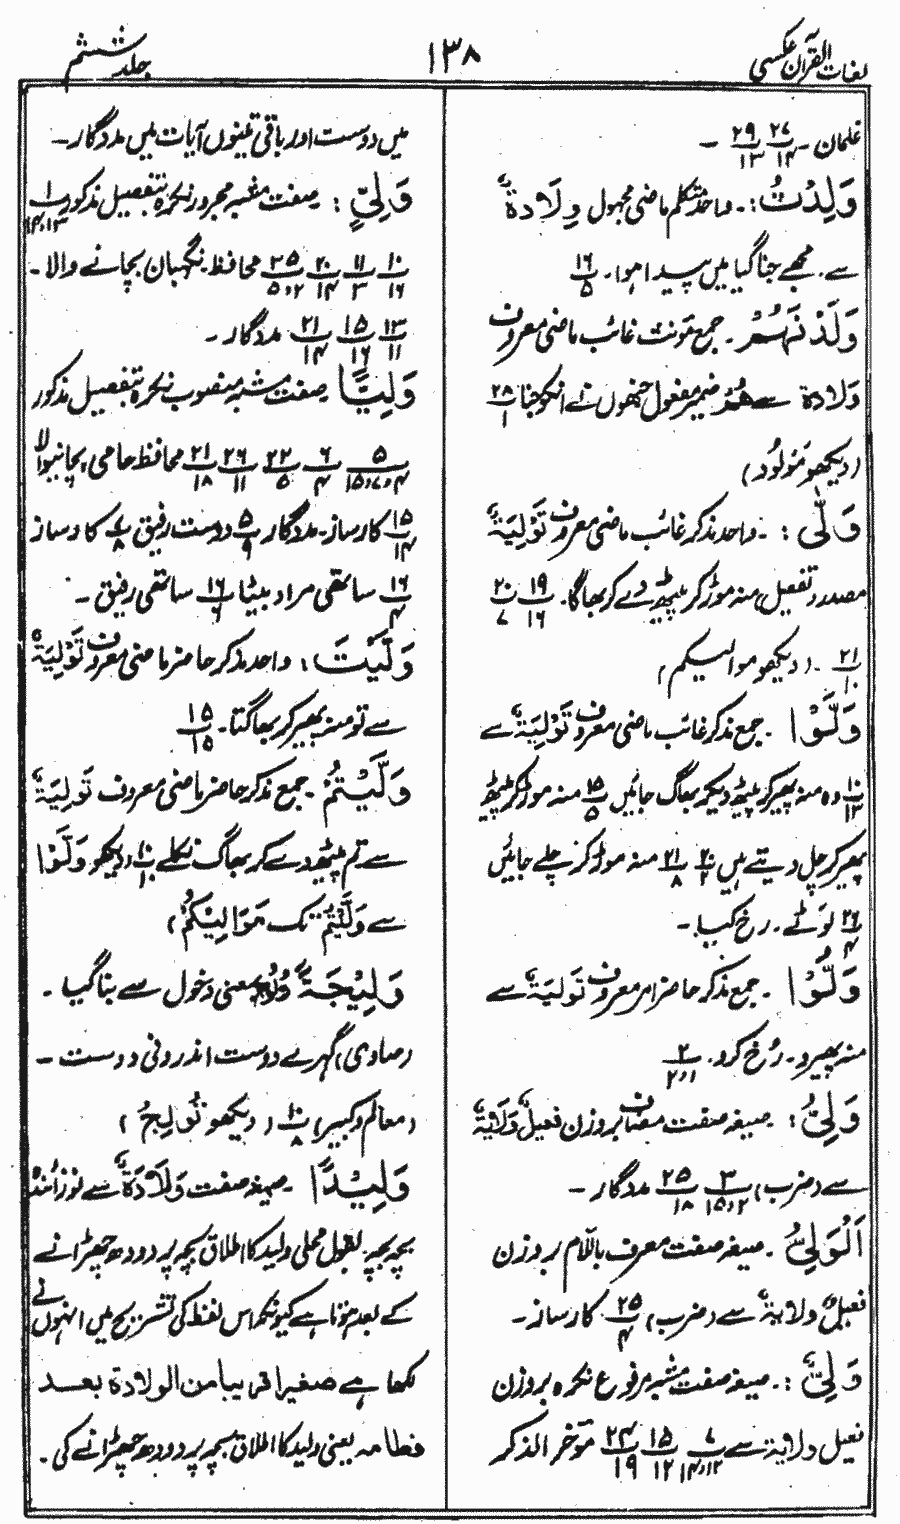 لغات القرآن عکسی
۱۳۸
جلد ششم
غلمان - ۲۷/۱۴ ۲۹/۱۳ -
وَلِدْتُّ: - واحد متکلم ماضی مجہول وِلَادَۃٌ
سے - مجھے جنا گیا میں پیدا ہوا - ۱۶/۵
وَلَدْنَهُمْ - جمع مؤنث غائب ماضی معروف
وِلَادۃ سے هُمْ ضمیر مفعول جنھوں نے انکو جنا ۲۸/۱
(دیکھو مَوْلُوْد)
وَلّٰی: - واحد مذکر غائب ماضی معروف تَوْلِیَۃٌ
مصدر (تفعیل) منہ موڑ کر پیٹھ دے کر بھاگا - ۱۹/۱۶ ۲۰/۷
۲۱/۱۰ - (دیکھو موالیکم)
وَلَّوْا - جمع مذکر غائب ماضی معروف تَوْلِیَۃٌ سے
۱۰/۱۳ وہ منہ پھیر کر پیٹھ دیکر بھاگ جائیں ۱۵/۵ منہ موڑ کر پیٹھ
پھیر کر چل دیتے ہیں ۲۰/۲ ۲۱/۸ منہ موڑ کر چلے جائیں
۲۶/۴ لوٹے - رخ کیا -
وَلُّوْا - جمع مذکر حاضر امر معروف تَوْلِیَۃٌ سے
منہ پھیرو - رُخ کرو - ۲/۱،۲
وَلِیُّ: صیغہ صفت مضاف بروزن فعیلٌ وَلَایَۃٌ
سے (ضرب) ۳/۱۵،۲ ۲۵/۱۸ مددگار -
اَلْوَلِیُّ - صیغہ صفت معرف باللام بروزن
فعیلٌ ولایۃٌ سے (ضرب) ۲۵/۴ کارساز -
وَلِیٌّ: - صیغہ صفت مشبہ مرفوع نکرہ بروزن
فعیل ولایۃ سے ۷/۱۴،۱۲ ۱۵/۱۲ ۲۴/۱۹ مؤخر الذکر
میں دوست اور باقی تینوں آیات میں مددگار -
وَلِیٍّ: صفت مشبہ مجرور نکرہ بتفصیل مذکور ۱/۱۴،۱۳
۱۰/۱۶ ۱۱/۳ ۲۰/۱۴ ۲۵/۵،۲ محافظ نگہبان بچانے والا -
۱۳/۱۱ ۱۵/۱۶ ۲۱/۱۴ مددگار -
وَلِیًّا صفت مشبہ منصوب نکرہ بتفصیل مذکور
۵/۱۵،۷،۴ ۶/۴ ۲۲/۵ ۲۶/۱۱ ۲۱/۱۸ محافظ حامی، بچانیوالا
۱۵/۱۴ کارساز - مددگار ۵/۹ دوست رفیق ۸ کارساز
۱۶/۴ ساتھی مراد بیٹا ۱۶/۶ ساتھی رفیق -
وَلَّیْتَ: واحد مذکر حاضر ماضی معروف تَوْلِیَۃٌ
سے تو منہ پھیر کر بھاگتا - ۱۵/۱۵
وَلَّیْتُمْ - جمع مذکر حاضر ماضی معروف تَوْلِیَۃٌ
سے تم پیٹھ دے کر بھاگ نکلے ۱۰/۱۰ (دیکھو وَلَّوْا
سے وَلَّیْتُمْ تک مَوَالِیْکُمْ)
وَلِیْجَۃً وُلُوْج بمعنی دخول سے بنا گیا -
(صاوی) گہرے دوست اندرونی دوست -
(معالم وکبیر) ۱۰/۸ (دیکھو تُوْلِجُ)
وَلِیْدًا - صیغہ صفت وَلَادَۃٌ سے نوزائندہ
بچہ بچہ بقول محلی ولید کا اطلاق بچہ پر دودھ چھڑانے
کے بعد ہوتا ہے کیونکہ اس لفظ کی تشریح میں انہوں نے
لکھا ہے صغیرا قریبا من الولادۃ بعد
فطامہ یعنی ولید کا اطلاق بچہ پر دودھ چھڑانے کی -